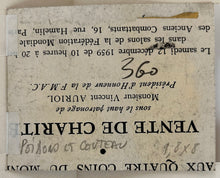 AUX QUATRE COINS DU MON
VENTE DE CHARIT
Monsieur Vincent AURIOL
sous le haut patronage de
Président d'Honneur de la F.M.A.C.
Le samedi 12 décembre 1959 de 10 heures à 20 h
dans les salons de la Fédération Mondiale
des Anciens Combattants, 16, rue Hamelin, Pa
360
POISSONS ET COUTEAU